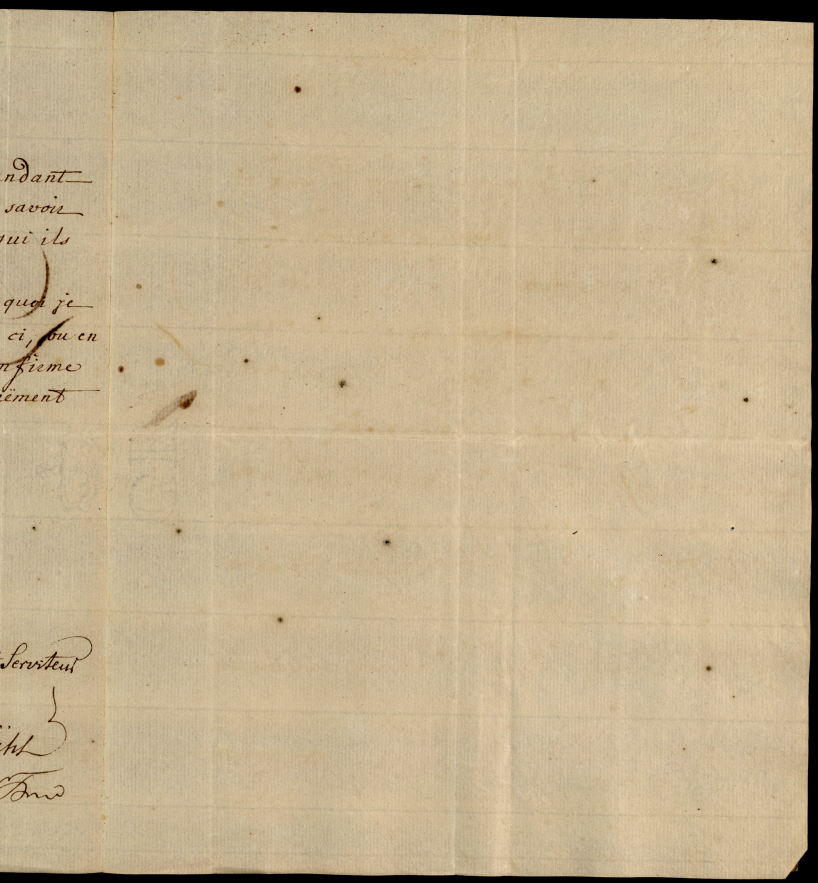 ndant
savoir
qui ils
quoi je
ci, ou en
nfirme
ément
Serviteur